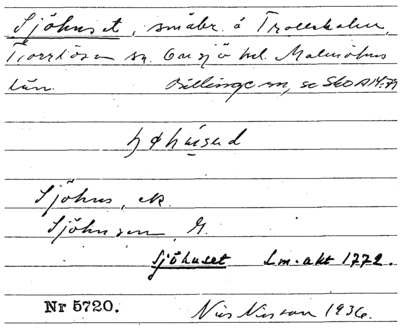 Sjöhuset, småbr. å Trollskalen,
Torrlösen sn. Onsjö hd. Malmöhus
län. Billinge sn, se Sko A 14:79
Sjöhus, ek
Sjöhusen, G.
Sjöhuset Lm. akt 1772.
Nr 5720. Nils Nilsson 1936.